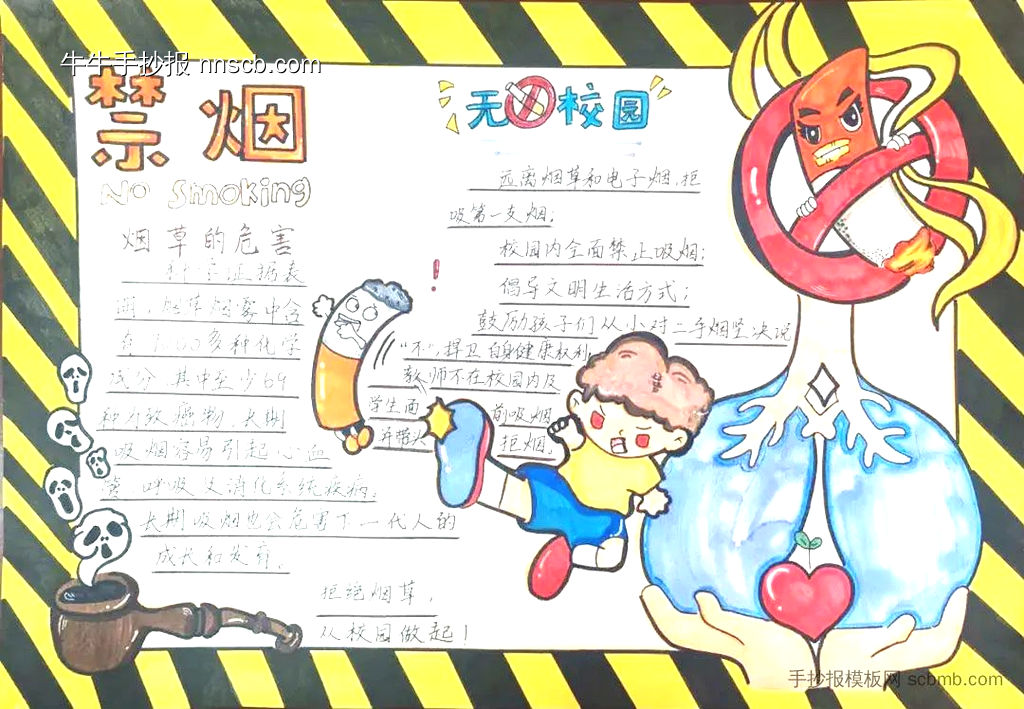 牛牛手抄报 nnscb.com
禁烟
No Smoking
烟草的危害
科学证据表
明，烟草烟雾中含
有7000多种化学
成分，其中至少69
种为致癌物，长期
吸烟容易引起心血
管 呼吸及消化系统疾病，
长期吸烟也会危害下一代人的
成长和发育。
拒绝烟草，
从校园做起！
无 校园
远离烟草和电子烟，拒
吸第一支烟；
校园内全面禁止吸烟；
倡导文明生活方式；
鼓励孩子们从小对二手烟坚决说
“不”，捍卫自身健康权利
教师不在校园内及
学生面 前吸烟
并带头 拒烟。
手抄报模板网 scbmb.com